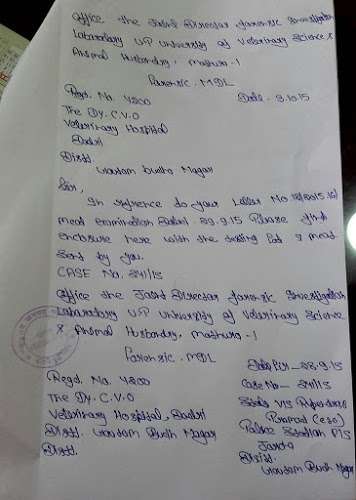 Office the Joint Director forensic Investigation
Labaratary U.P University of Veterinary Science &
Animal Husbandry, mathura-1
Forensic. MDL
Regd. No. 4200
Date - 9.10.15
The Dy. C.V.O
Veterinary Hospital
Dadri
Distt.
Goutam budha Nagar
Sir,
In refrence to your Letter No.
meat examination Dated 29.9.15 Please find
enclosure here with the testing of meat
Sent by you.
CASE No. 211/15
Office the Joint Director forensic Investigation
Labaratary U.P University of Veterinary Science
& Animal Husbandry, mathura-1
Forensic. MDL
Regd. No. 4200
The Dy. C.V.O
Veterinary Hospital, Dadri
Distt. Goutam Budh Nagar
Distt.
28.9.15
Case No - 211/15
State V/S
Police Station P/S
Jarcha
Distt.
Goutam Budh Nagar